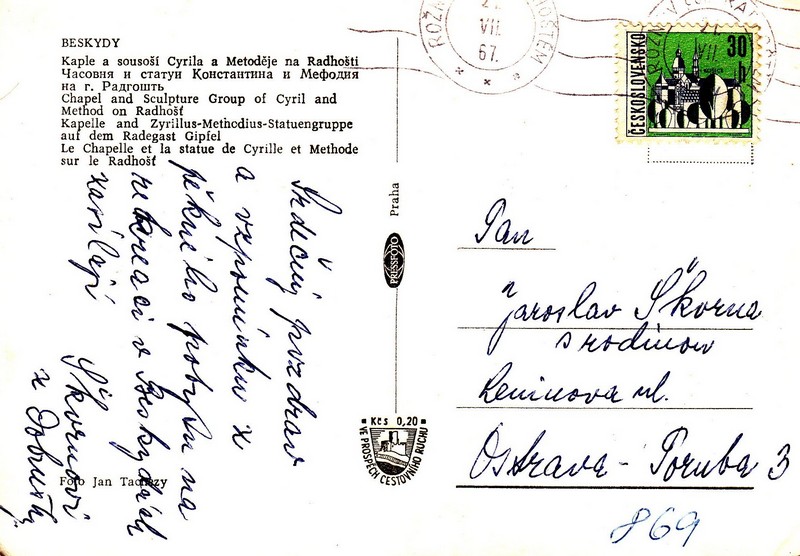 BESKYDY
Kaple a sousoší Cyrila a Metoděje na Radhošti
Часовня и статуи Константина и Мефодия
на г. Радгошть
Chapel and Sculpture Group of Cyril and
Method on Radhošť
Kapelle and Zyrillus-Methodius-Statuengruppe
auf dem Radegast Gipfel
Le Chapelle et la statue de Cyrille et Methode
sur le Radhošť
Srdečný pozdrav
a vzpomínku z
pěkného pobytu na
rekreaci v Beskydách
zasílají
Škornovi
z Dobrušky
Foto Jan Tachezy
Praha
PRESSFOTO
Kčs 0,20
VE PROSPĚCH CESTOVNÍHO RUCHU
21.
VII.
67.
ČESKOSLOVENSKO
30
h
Pan
Jaroslav Škorna
s rodinou
Leninova ul.
Ostrava - Poruba 3
869